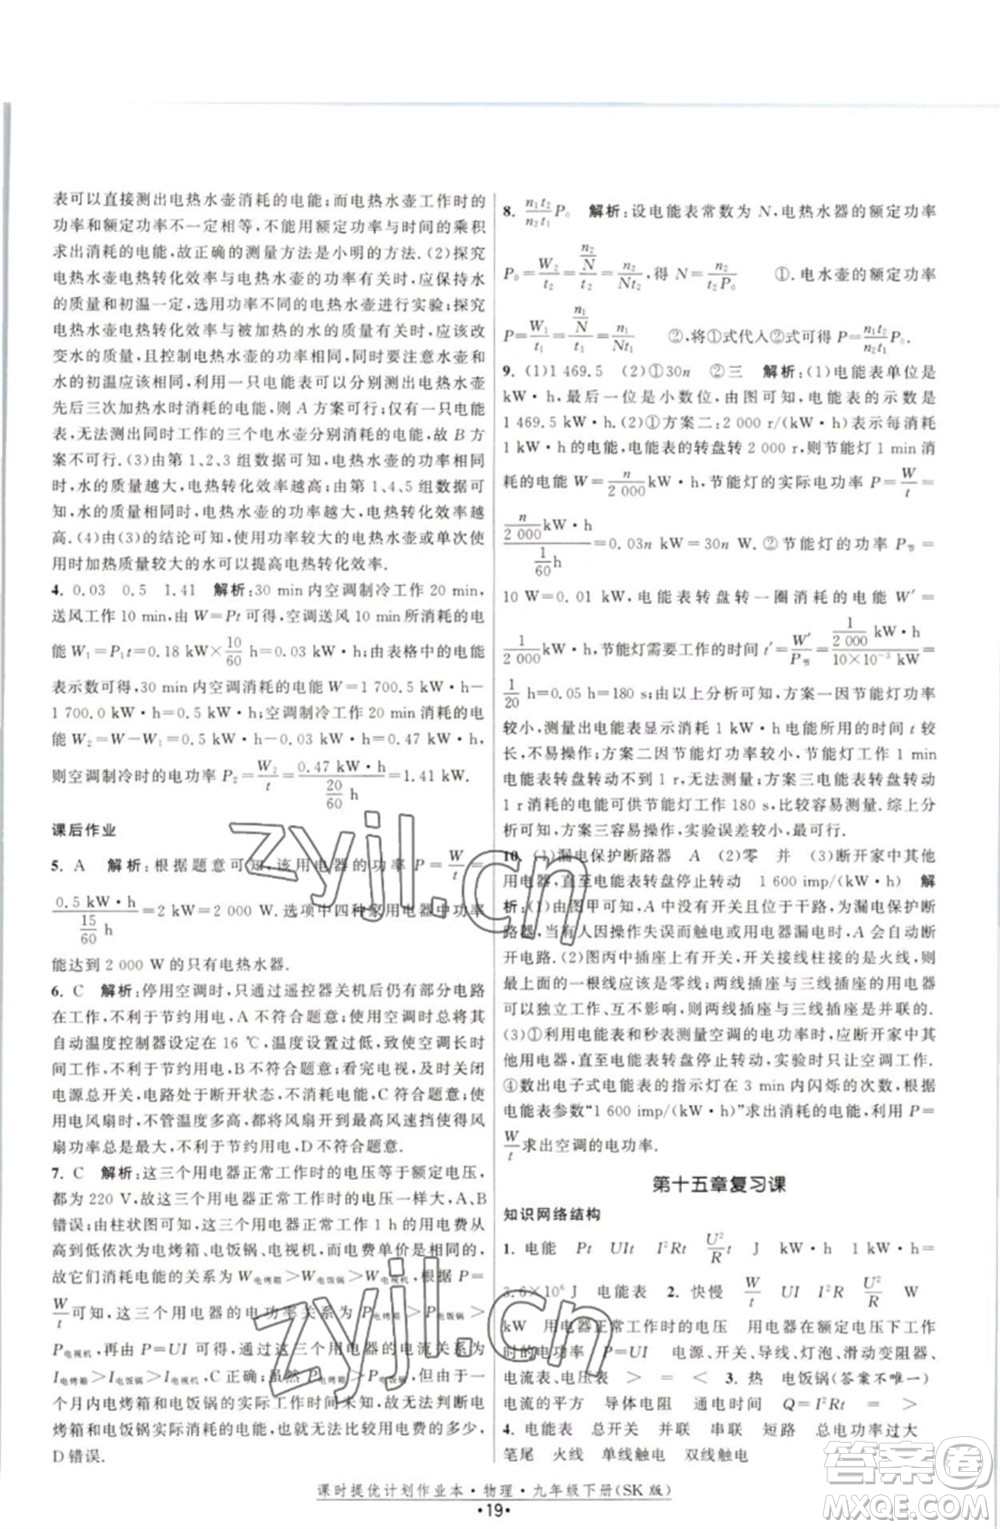 表可以直接测出电热水壶消耗的电能;而电热水壶工作时的
功率和额定功率不一定相等,不能用额定功率与时间的乘积
求出消耗的电能,故正确的测量方法是小明的方法.(2)探究
电热水壶电热转化效率与电热水壶功率的关系,应保持水的
质量和初温一定,选用功率不同的电热水壶进行实验;探究
电热水壶电热转化效率与被加热的水的质量有关时,应该改
变水的质量,且控制电热水壶的功率相同,同时要注意水壶和
水的初温应该相同,利用一只电能表可以分别测出电热水壶
先后三次加热水时消耗的电能,则 A 方案可行;仅有一只电
表,无法测出同时工作的三个电水壶分别消耗的电能,故 B 方
案不可行.(3)由第 1、2、3 组数据可知,电热水壶的功率一定
时,水的质量越大,电热转化效率越高;由 1、4、5 组数据可知,
水的质量一定时,电热水壶的功率越大,电热转化效率越
高.(4)由(3)的结论可知,用功率较大的电热水壶且一次烧水
质量较大的水可以提高电热转化效率.
4. 0.03 0.5 1.41 解析:30 min内空调制冷工作 20 min,
送风工作 10 min,由 W=Pt 可得,空调送风时所消耗的电
能 W₁=P₁t=0.18 kW×10/60 h=0.03 kW·h;由表格中的电能
表示数可得,30 min内空调消耗的电能 W=1 700.5 kW·h-
1 700.0 kW·h=0.5 kW·h;空调制冷工作 20 min消耗的电
能 W₂=W-W₁=0.5 kW·h-0.03 kW·h=0.47 kW·h,
则空调制冷时的电功率 P₂=W₂/t=0.47 kW·h/(20/60 h)=1.41 kW.
课后作业
5. A 解析:根据题意可知,该用电器的功率 P=W/t=
0.5 kW·h/(15/60 h)=2 kW=2 000 W.选项中四种家用电器中功率
能达到 2 000 W 的只有电热水器.
6. C 解析:停用空调时,只通过遥控器关机后仍有部分电路
在工作,不利于节约用电,A 不符合题意;使用空调时,将其
自动温度控制器设定在 16 ℃,温度设置太低,制冷时间较长,
耗电量大,不利于节约用电,B 不符合题意;看完电视,及时关闭
电源总开关,电路处于断开状态,利于节约用电,C 符合题意;使
用电风扇时,不管温度高低都开到最高风速挡位,最高风速的风
扇功率总是最大,不利于节约用电,D 不符合题意.
7. C 解析:这三个用电器正常工作时的电压等于额定电压,
都为 220 V,故这三个用电器正常工作时的电压一样大,A、B
错误;由柱状图可知,这三个用电器正常工作 1 h 的用电费从大
到小依次是电烤箱、电饭锅、电视机,而电费等于电能乘单价,
故它们消耗电能的关系为 W电烤箱>W电饭锅>W电视机,根据 P=
W/t可知,这三个用电器的电功率关系为 P电烤箱>P电饭锅>
P电视机,再由 P=UI 可知,通过这三个用电器的电流关系为
I电烤箱>I电饭锅>I电视机,C 正确;虽然 P电烤箱>P电饭锅,但由于一
个月内电烤箱和电饭锅的实际工作时间未知,故无法判断电
烤箱和电饭锅实际消耗电能多少,故无法比较使用电费的多少,
D 错误.
8. n₁t₂/n₂t₁ P₀ 解析:设电能表常数为 N,电热水器的额定功率
P₀=W₂/t₂=(n₂/N)/t₂=n₂/Nt₂,得 N=n₂/t₂P₀ ①.电水壶的额定功率
P=W₁/t₁=(n₁/N)/t₁=n₁/Nt₁ ②,将①式代入②式可得 P=n₁t₂/n₂t₁ P₀.
9. (1)1 469.5 (2)①30n ②三 解析:(1)电能表单位是
kW·h,最后一位是小数位,由图可知,电能表的示数是
1 469.5 kW·h.(2)①方案二:2 000 r/(kW·h)表示每消耗
1 kW·h的电能,电能表的转盘转 2 000 r,则节能灯 1 min消
耗的电能 W=n/2 000 kW·h,节能灯的实际电功率 P=W/t=
(n/2 000 kW·h)/(1/60 h)=0.03n kW=30n W.②节能灯的功率 P节=
10 W=0.01 kW,电能表转盘转一圈消耗的电能 W′=
1/2 000 kW·h,节能灯需要工作的时间 t′=W′/P节=(1/2 000)/(10×10⁻³) kW·h/kW=
1/20 h=0.05 h=180 s;由以上分析可知,方案一因节能灯功率
较小,测量出电能表显示消耗 1 kW·h 电能所用的时间 t 较
长,不易操作;方案二因节能灯功率较小,节能灯工作 1 min
电能表转盘转动不到 1 r,无法测量;方案三电能表转盘转动
1 r消耗的电能可供节能灯工作 180 s,便于测量.综上分析
方案三容易操作,实验误差较小,最可行.
10. (1)漏电保护断路器 A (2)零 并 (3)断开家中其他
用电器,直至电能表转盘停止转动 1 600 imp/(kW·h) 解
析:(1)由图甲可知,A 中没有开关且位于干路,为漏电保护断
路器,当有人因操作失误而触电或电器漏电时,A 会自动断
开电路.(2)图丙中插座上有开关,开关接线柱上的是火线,另
一根线应该是零线;两线插座与三线插座所接用电器应该
可以独立工作、互不影响,则两线插座与三线插座是并联的.
(3)①利用电能表和秒表测量空调的电功率时,应断开家中其
他用电器,直至电能表转盘停止转动,实验时只让空调工作.
④数出电子式电能表的指示灯在 1 min 内闪烁的次数,根据
电能表参数“1 600 imp/(kW·h)”求出消耗的电能,利用 P=
W/t求出空调的电功率.
第十五章复习课
知识网络结构
1. 电能 Pt UIt I²Rt U²/R t J kW·h
3.6×10⁶ J 电能表 2. 快慢 W/t UI I²R U²/R W
kW 用电器正常工作时的电压 用电器在额定电压下工作
时的电功率 P=UI 电源、开关、导线、灯泡、滑动变阻器、
电流表、电压表 > > 3. 热 电饭锅(答案不唯一)
电流的平方 导体电阻 通电时间 Q=I²Rt = >
4. 电能表 总开关 并联 串联 短路 总功率过大
笔尾 火线 单线触电 双线触电
课时提优计划作业本·物理·九年级下册(SK版)
·19·
zyjl.cn
zyjl.cn
答案圈
MXQE.COM